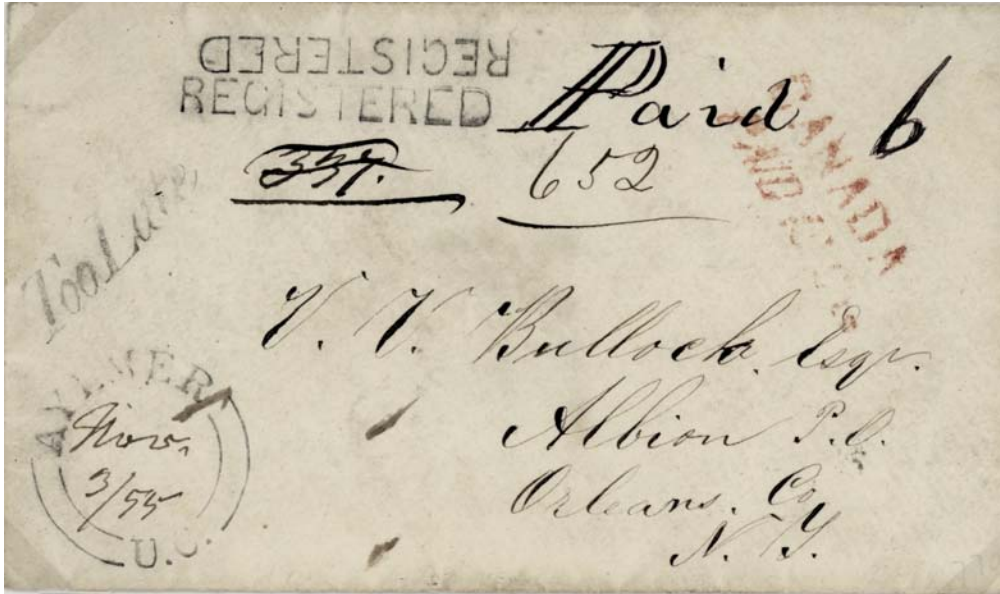 REGISTERED
REGISTERED
Paid 6
652
CANADA
Too Late
V. V. Bullock, Esqr.
Albion P.O.
Orleans. Co.
N. Y.
AYLMER
Nov.
3/55
U.C.